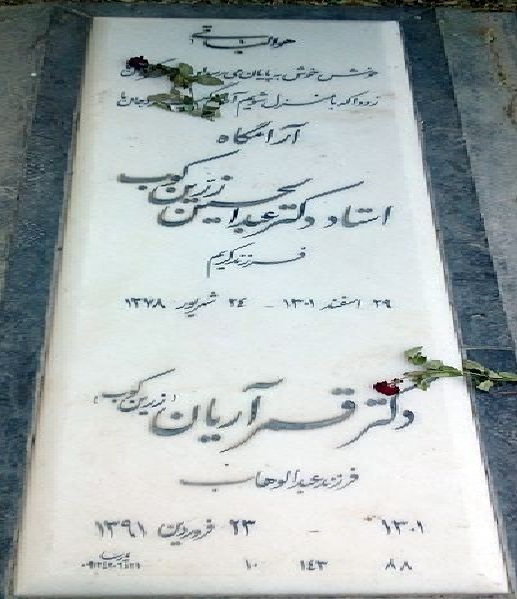 هوالباقی
خوش خوش به پایان می رسد
زود آ که با منزل شویم
آرامگاه
استاد دکتر عبدالحسین زرین کوب
فرزند کریم
۲۹ اسفند ۱۳۰۱ - ۲۴ شهریور ۱۳۷۸
دکتر قمر آریان (زرین کوب)
فرزند عبدالوهاب
۱۳۰۱ - ۲۳ فروردین ۱۳۹۱
۸۸ ۱۴۳ ۱۰